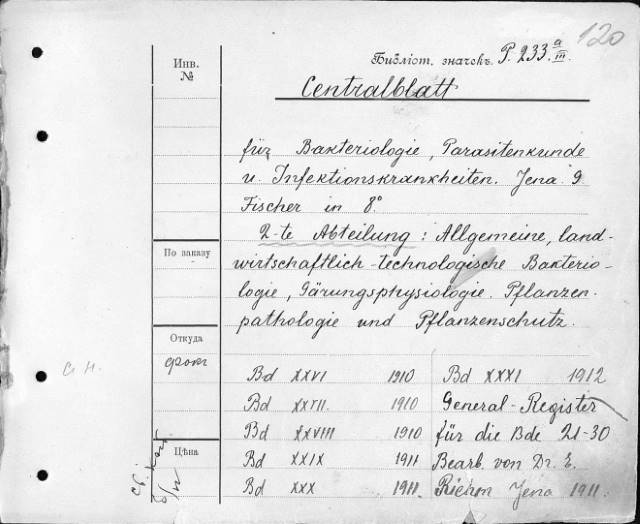 120
Инв.
№
Библіот. значекъ P. 233. a/III.
Centralblatt
für Bakteriologie, Parasitenkunde
u. Infektionskrankheiten. Jena. G.
Fischer in 8°
2-te Abteilung: Allgemeine, land-
wirtschaftlich-technologische Bakterio-
logie, Gärungsphysiologie. Pflanzen-
pathologie und Pflanzenschutz.
По заказу
Откуда
Цѣна
Bd XXVI 1910
Bd XXVII. 1910
Bd XXVIII 1910
Bd XXIX 1911
Bd XXX 1911.
Bd XXXI 1912
General-Register
für die Bde 21-30
Bearb. von Dr. E.
Riehm Jena 1911.